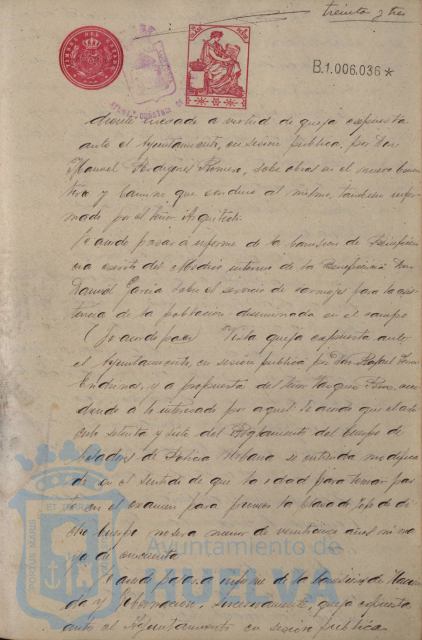 treinta y tres
TIMBRE DEL ESTADO
B.1.006.036*
diente incoado a virtud de queja expuesta
ante el Ayuntamiento, en sesión publica, por Don
Manuel Rodriguez Romero, sobre obras en el nuevo
y camino que conduce al mismo, tambien infor-
mado por el Señor Arquitecto.
Se acuerda pasar a informe de la Comision de Beneficen-
cia escrito del Medico interino de la Beneficencia Don
Manuel Garcia sobre el servicio de carruajes para la asis-
tencia de la poblacion diseminada en el campo
Vista queja expuesta ante
el Ayuntamiento, en sesión publica por Don Rafael
y a propuesta del Señor Vazquez acce-
diendo a lo interesado por aquel: Se acuerda que el arti-
culo setenta y siete del Reglamento del Cuerpo de
de Policia Urbana se entienda modifica-
do en el sentido de que la edad para tomar par-
te en el examen para proveer la plaza de Jefe de di-
cho Cuerpo no sera menor de veinticinco años ni ma-
yor de cincuenta
Se acuerda pasar a informe de la Comision de Hacien-
da y Gobernacion, queja expuesta
ante el Ayuntamiento en sesión publica
PORTUS MARIS
ET TERRAE
Ayuntamiento de
HUELVA